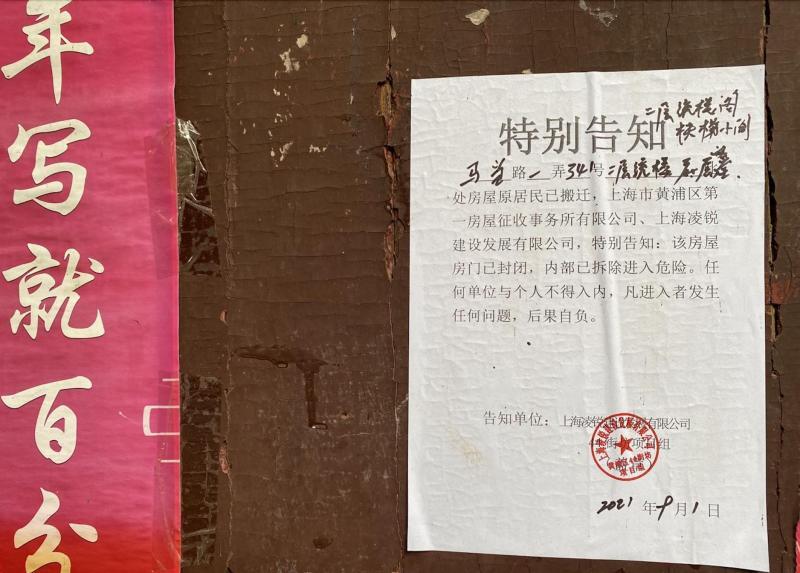 年写就百分
特别告知
二层统楼阁
扶梯小间
马当路一弄341号二层统楼
处房屋原居民已搬迁，上海市黄浦区第
一房屋征收事务所有限公司、上海凌锐
建设发展有限公司，特别告知：该房屋
房门已封闭，内部已拆除进入危险。任
何单位与个人不得入内，凡进入者发生
任何问题，后果自负。
告知单位：上海凌锐建设发展有限公司
项目组
2021年9月1日